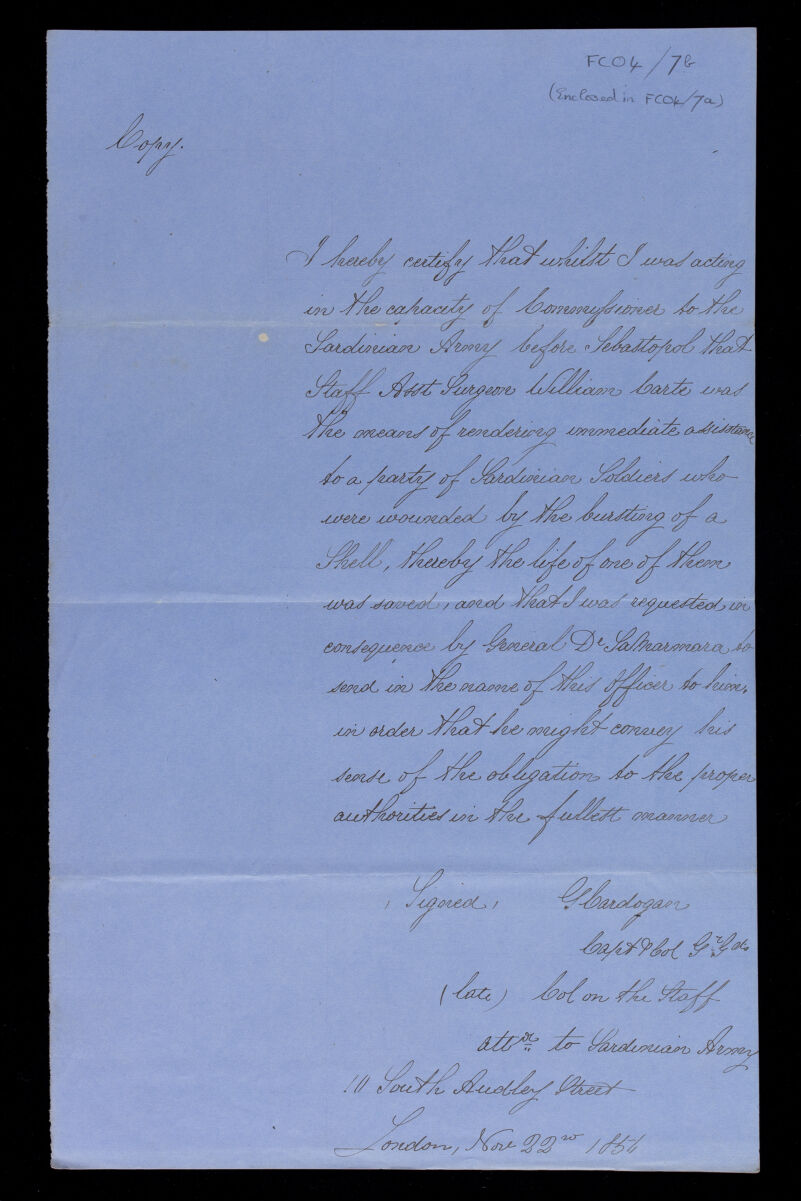 FCO4/7b
(Enclosed in FCO4/7a)
Copy.
I hereby certify that whilst I was acting
in the capacity of Commissioner to the
Sardinian Army before Sebastopol that
Staff Asst Surgeon William Carte was
the means of rendering immediate assistance
to a party of Sardinian Soldiers who
were wounded by the bursting of a
Shell, thereby the life of one of them
was saved, and that I was requested in
consequence by General De LaMarmara to
send in the name of this Officer to him,
in order that he might convey his
sense of the obligation to the proper
authorities in the fullest manner
(Signed) G Cardogan
Capt & Col Gr Gds
(late) Col on the Staff
attd to Sardinian Army
10 South Audley Street
London, Nov 22nd